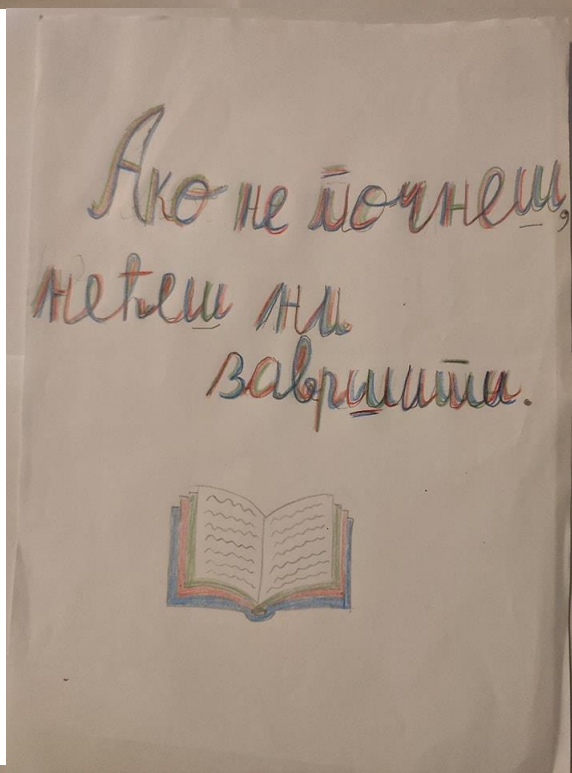 Ако не почнеш,
нећеш ни
завршити.